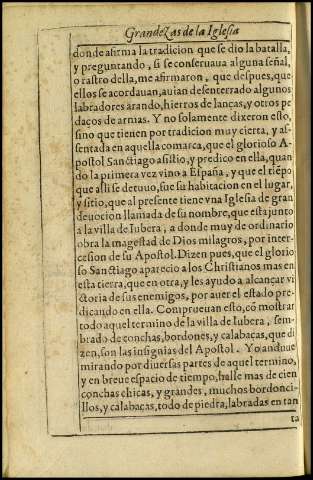 Grandezas de la Iglesia
donde afirma la tradicion que se dio la batalla,
y preguntando, si se conseruaua alguna señal,
o rastro della, me afirmaron, que despues, que
ellos se acordauan, auian desenterrado algunos
labradores arando, hierros de lanças, y otros pe
daços de armas. Y no solamente dixeron esto,
sino que tienen por tradicion muy cierta, y as-
sentada en aquella comarca, que el glorioso A-
postol Sanctiago asistio, y predico en ella, quan
do la primera vez vino a España, y que el tiẽpo
que alli se detuuo, fue su habitacion en el lugar,
y sitio, que al presente tiene vna Iglesia de gran
deuocion llamada de su nombre, que esta junto
a la villa de Iubera, a donde muy de ordinario
obra la magestad de Dios milagros, por inter-
cesion de su Apostol. Dizen pues, que el glorio
so Sanctiago aparecio a los Christianos mas en
esta tierra, que en otra, y les ayudo a alcançar vi
ctoria de sus enemigos, por auer el estado pre-
dicando en ella. Comprueuan esto, cõ mostrar
todo aquel termino de la villa de Iubera, sem-
brado de conchas, bordones, y calabaças, que di
zen, son las insignias del Apostol. Yo anduue
mirando por diuersas partes de aquel termino,
y en breue espacio de tiempo, halle mas de cien
conchas chicas, y grandes, muchos bordonci-
llos, y calabaças, todo de piedra, labradas en tan
ta